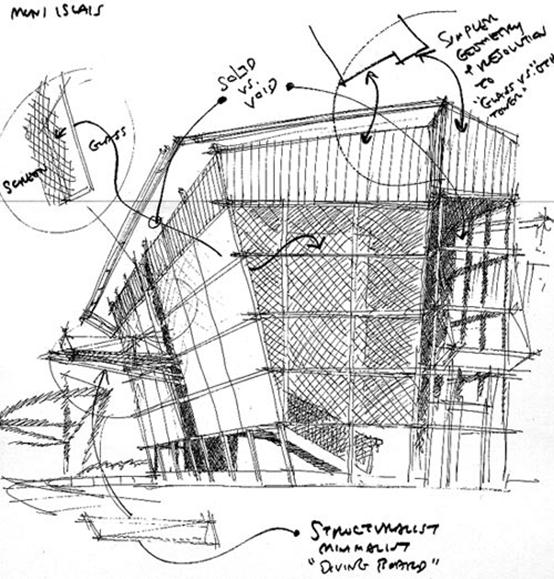 SOLID
VS.
VOID
SIMPLER
GEOMETRY
& RESOLUTION
TO
"GLASS VS"
TOWER"
GLASS
SCREEN
STRUCTURALIST
MINIMALIST
"DIVING BOARD"